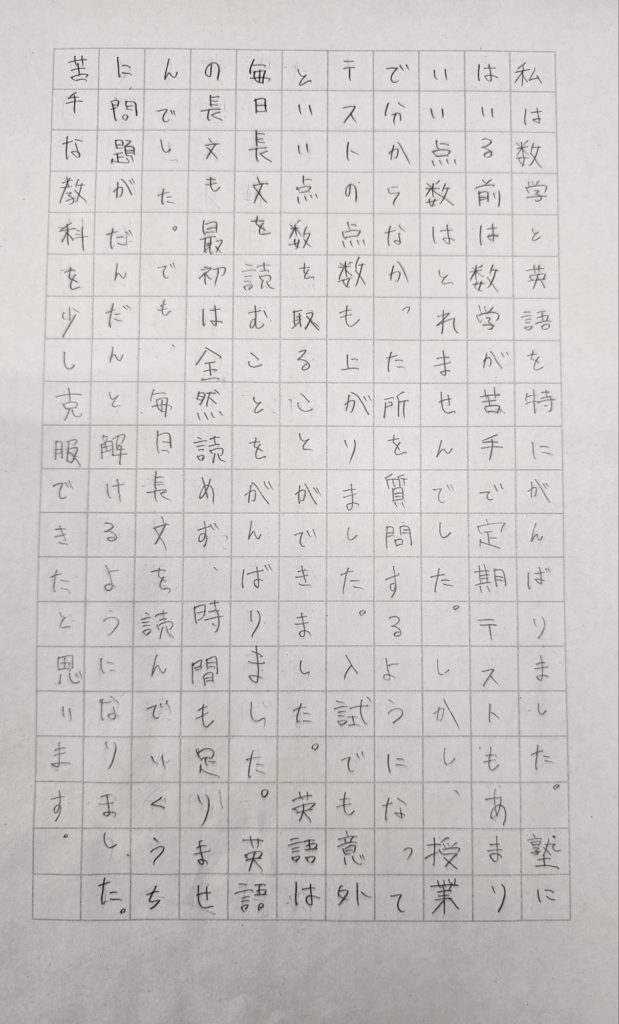 私は数学と英語を特にがんばりました。塾に
はいる前は数学が苦手で定期テストもあまり
いい点数はとれませんでした。しかし、授業
で分からなかった所を質問するようになって
テストの点数も上がりました。入試でも意外
といい点数を取ることができました。英語は
毎日長文を読むことをがんばりました。英語
の長文も最初は全然読めず、時間も足りませ
んでした。でも、毎日長文を読んでいくうち
に問題がだんだんと解けるようになりました。
苦手な教科を少し克服できたと思います。